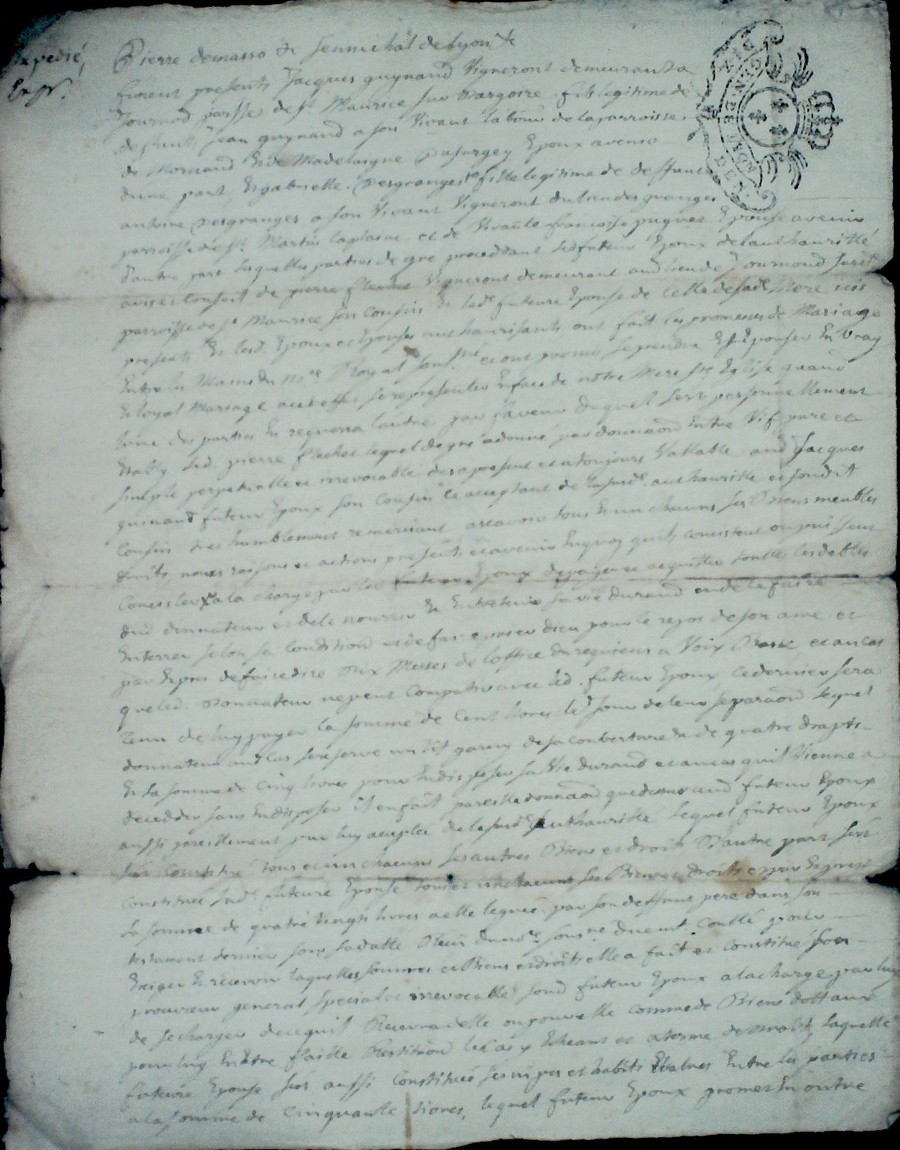 Expedié,
Pierre demasso de Sennechal de Lyon
furent presents Jacques guynand Vigneront demeurant a
Journod parsse de st Maurice sur Dargoire fils legitime de
deffunt Jean guynand a son Vivant laboureur de la parroisse
de Mornand Et de Madelaigne Epoux avenir
dune part Et gabrielle Desgranges fille legitime de deffunt
antoine Desgranges a son Vivant Vigneront du lieu des granges
parroisse de st Martin laplaine et de Vivante francoise Epouse avenir
dautre part lesquelles parties de gre procedant led futeur Epoux de lauthorité
avis et Conseil de pierre flechet Vigneront demeurant aud lieu de Journod
parroisse de st Maurice son Cousin Et lade futeure Epouse de celle desade Mere icis
presents Et lesd Epoux et Epouse authaurisants ont fait les promesses de Mariage
Entre les Mains du Nore Royal et ont promis se prendre Et Epouser En Vray
Et loyal Mariage a cet effet se representer En face de notre Mere ste Eglise quand
lune des parties En requerra lautre, par faveur duquel sest personnellement
Etably led pierre flechet lequel de gre a donné par donnaon Entre Vif pure et
simple perpetuelle et irrevocable des a present et a toujours Vallable aud Jacques
guinand futeur Epoux son Cousin acceptant de lasude authaurite et sondit
Cousin tres humblement remerciant ascavoir tous Et un chacuns ses Biens meubles
droits, noms raisons et actions presents et avenir En quoy quils consistent
a la charge par led futeur Epoux de payer et acquitter toutes les debtes
dud donnateur et de le nourrir Et Entretenir sa vie durand et de le faire
Enterrer selon sa Condition et de faire prier dieu pour le repos de son ame et
par Expres de faire dire Dix Messes de loffice de requiem a Voix Basse, et au cas
que led Donnateur ne peut Compatir avec led futeur Epoux ce dernier sera
tenu de luy payer la somme de Cent livres le jour de leur separaon lequel
donnateur se reserve un lit garny de sa couverture Et de quatre draps
Et la somme de Cinq livres pour En disposer sa Vie durand et au cas quil Vienne a
decedder sans En disposer il en fait pareille donnaon que dessus aud futeur Epoux
aussi pareillement par luy acceptée de lasude authaurite lequel futeur Epoux
sest constitué tous et un chacuns ses autres Biens et droits Dautre part sest
constitué lade futeure Epouse tous et un chacuns ses Biens et droits et par Expres
la somme de quatre Vingts livres a elle leguée par son deffunt pere dans son
testament dernier sous sa datte Receu du nore sousné duement Collé pour
Exiger Et recevoir laquelle somme et Biens et droits elle a fait et constitué son
procureur general special et irrevocable sond futeur Epoux a la charge par luy
de se charger de ce quil Recevra delle ou pour elle comme de Biens dottaux
pour luy En Etre faitte Restitution le cas y Echeant et a terme de droit, laquelle
futeure Epouse sest aussi Constituée ses nipes et habits Evalues Entre les parties
a la somme de Cinquante livres, lequel futeur Epoux promet En outre